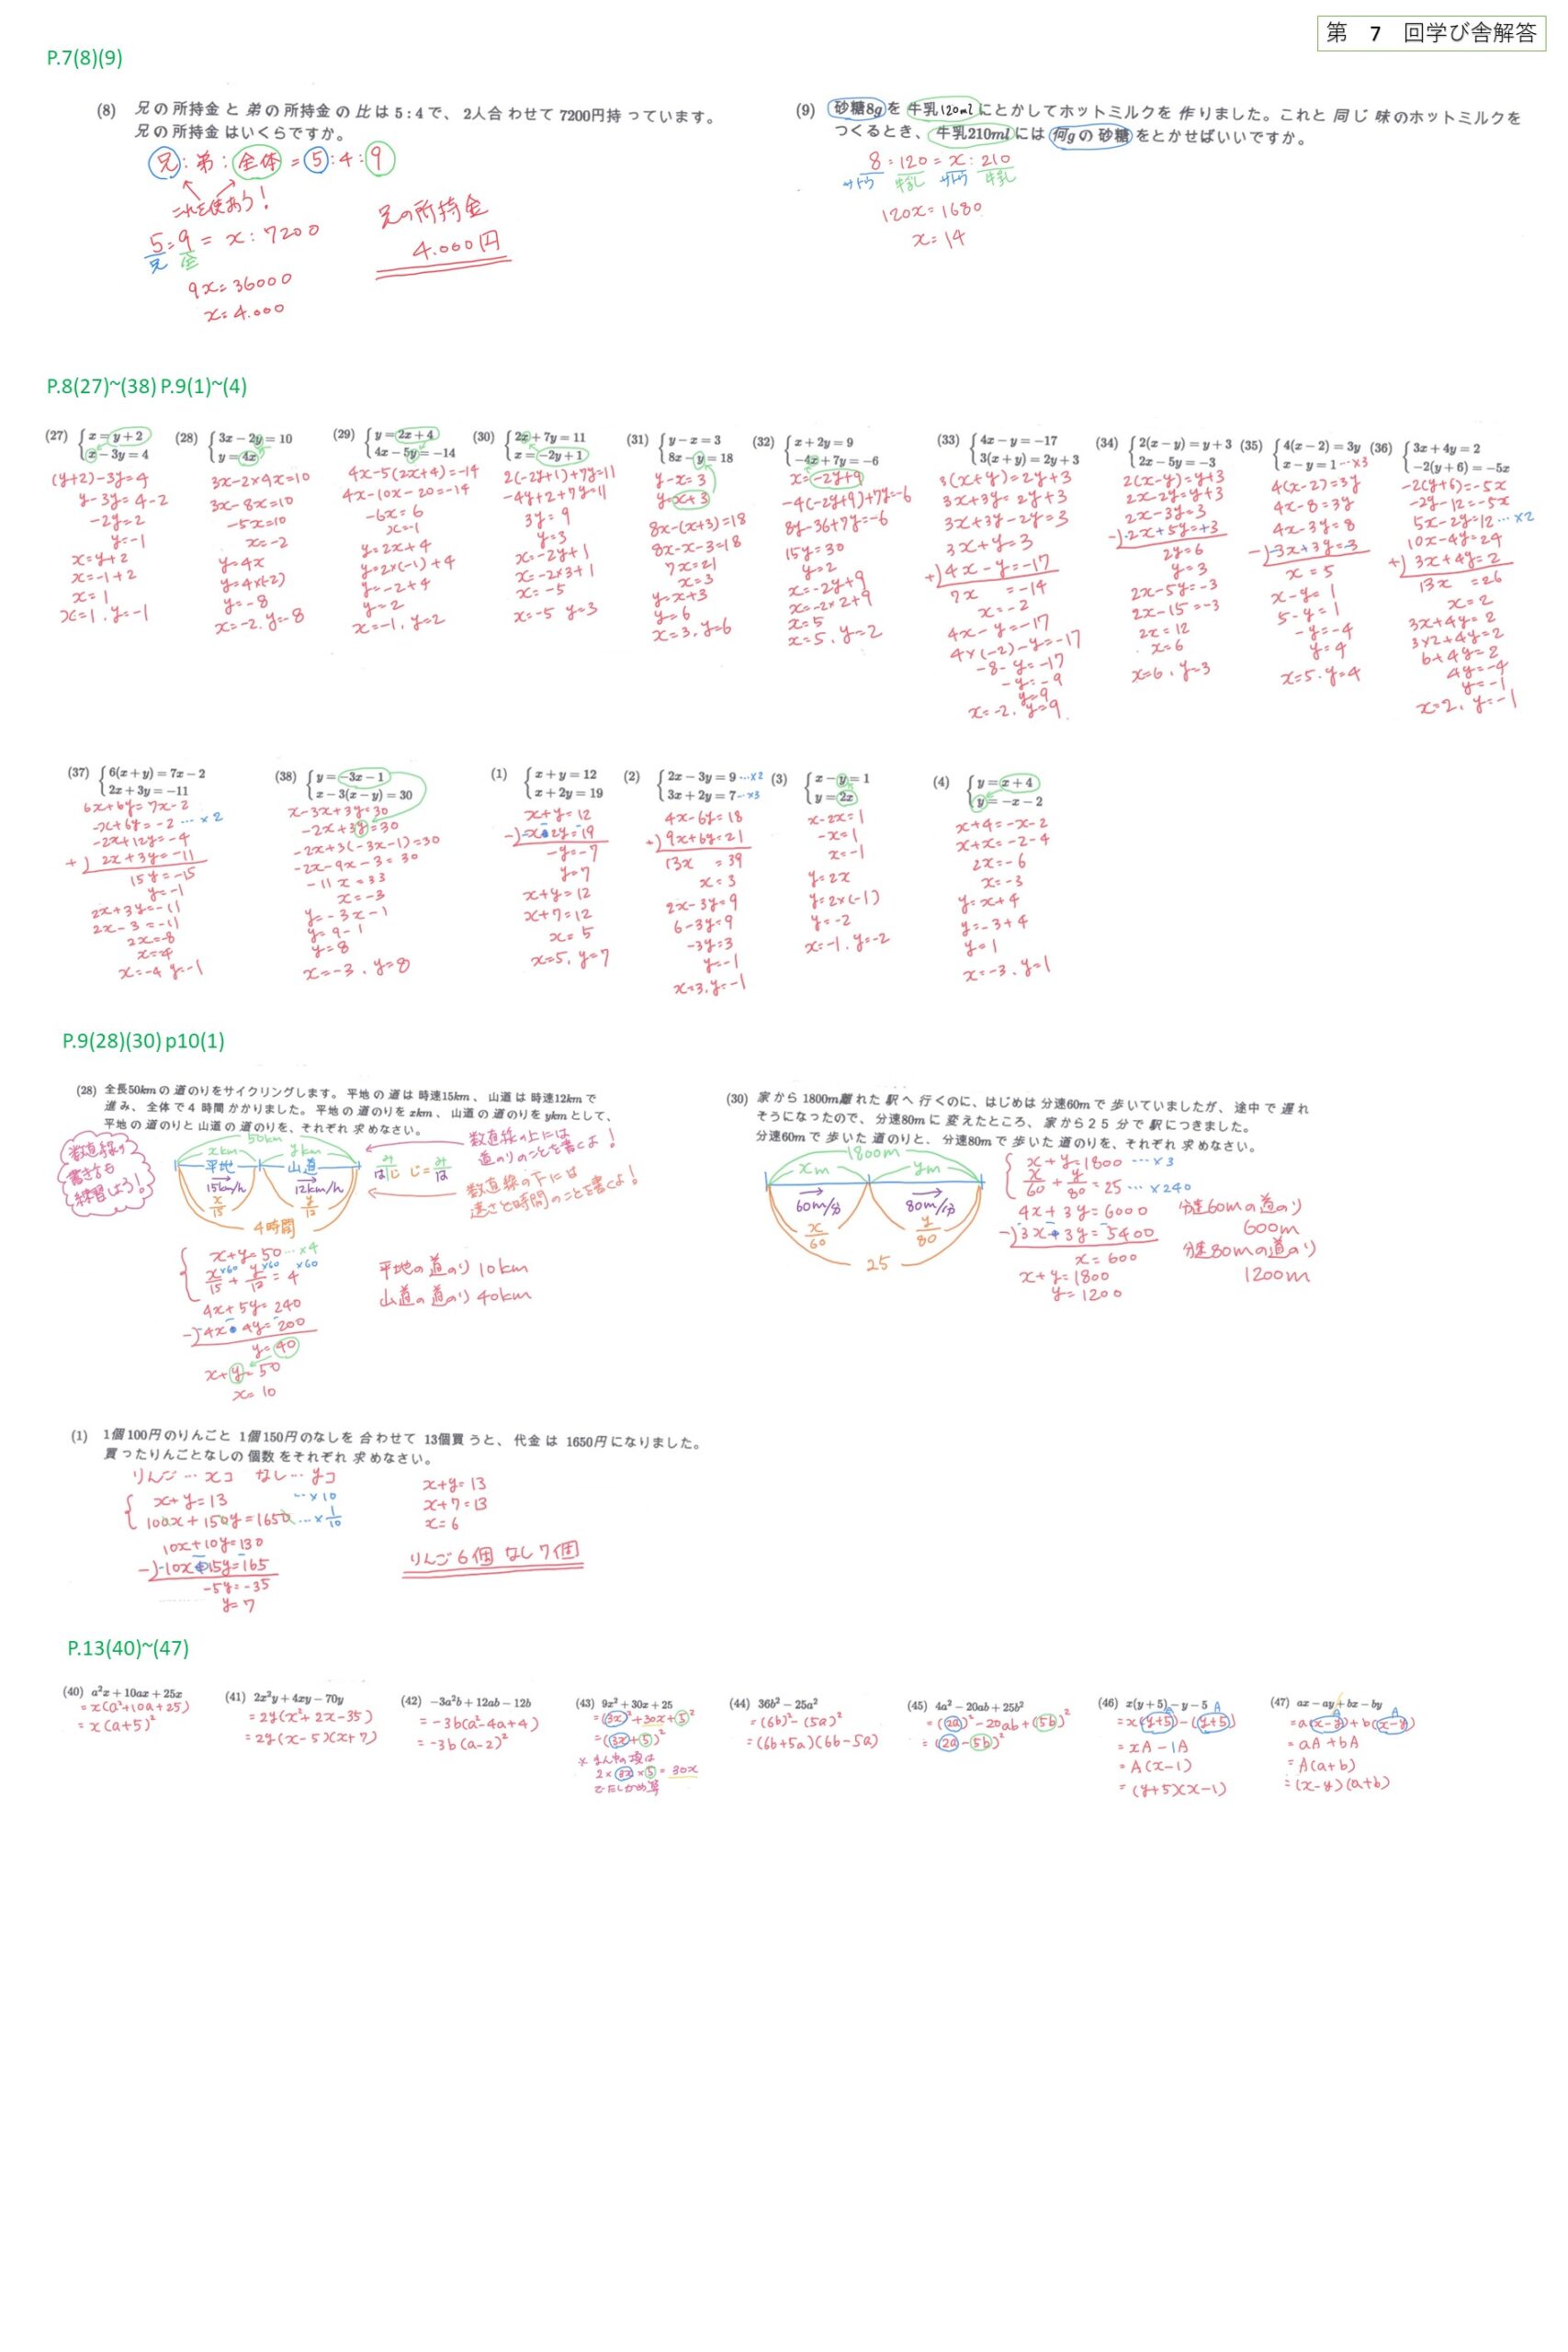 第 7 回学び舎解答
P.7(8)(9)
(8) 兄の所持金と弟の所持金の比は5:4で、2人合わせて7200円持っています。
兄の所持金はいくらですか。
兄:弟:全体=5:4:9
これを使おう!
5:9=x:7200
兄 全
9x=36000
x=4.000
兄の所持金
4.000円
(9) 砂糖8gを牛乳120mlにとかしてホットミルクを作りました。これと同じ味のホットミルクを
つくるとき、牛乳210mlには何gの砂糖をとかせばいいですか。
8:120=x:210
サトウ 牛乳 サトウ 牛乳
120x=1680
x=14
P.8(27)~(38) P.9(1)~(4)
(27) x=y+2
x-3y=4
(y+2)-3y=4
y-3y=4-2
-2y=2
y=-1
x=y+2
x=-1+2
x=1
x=1, y=-1
(28) 3x-2y=10
y=4x
3x-2×4x=10
3x-8x=10
-5x=10
x=-2
y=4x
y=4×(-2)
y=-8
x=-2, y=-8
(29) y=2x+4
4x-5y=-14
4x-5(2x+4)=-14
4x-10x-20=-14
-6x=6
x=-1
y=2x+4
y=2×(-1)+4
y=-2+4
y=2
x=-1, y=2
(30) 2x+7y=11
x=-2y+1
2(-2y+1)+7y=11
-4y+2+7y=11
3y=9
y=3
x=-2y+1
x=-2×3+1
x=-5
x=-5 y=3
(31) y-x=3
8x-y=18
y-x=3
y=x+3
8x-(x+3)=18
8x-x-3=18
7x=21
x=3
y=x+3
y=6
x=3, y=6
(32) x+2y=9
-4x+7y=-6
x=-2y+9
-4(-2y+9)+7y=-6
8y-36+7y=-6
15y=30
y=2
x=-2y+9
x=-2×2+9
x=5
x=5, y=2
(33) 4x-y=-17
3(x+y)=2y+3
3(x+y)=2y+3
3x+3y=2y+3
3x+3y-2y=3
3x+y=3
+) 4x-y=-17
7x =-14
x=-2
4x-y=-17
4×(-2)-y=-17
-8-y=-17
-y=-9
y=9
x=-2, y=9
(34) 2(x-y)=y+3
2x-5y=-3
2(x-y)=y+3
2x-2y=y+3
2x-3y=3
-) -2x+5y=+3
2y=6
y=3
2x-5y=-3
2x-15=-3
2x=12
x=6
x=6, y=3
(35) 4(x-2)=3y
x-y=1 …×3
4(x-2)=3y
4x-8=3y
4x-3y=8
-) -3x+3y=-3
x=5
x-y=1
5-y=1
-y=-4
y=4
x=5, y=4
(36) 3x+4y=2
-2(y+6)=-5x
-2(y+6)=-5x
-2y-12=-5x
5x-2y=12 …×2
10x-4y=24
+) 3x+4y=2
13x =26
x=2
3x+4y=2
3×2+4y=2
6+4y=2
4y=-4
y=-1
x=2, y=-1
(37) 6(x+y)=7x-2
2x+3y=-11
6x+6y=7x-2
-x+6y=-2 …×2
-2x+12y=-4
+) 2x+3y=-11
15y=-15
y=-1
2x+3y=-11
2x-3=-11
2x=-8
x=-4
x=-4 y=-1
(38) y=-3x-1
x-3(x-y)=30
x-3x+3y=30
-2x+3y=30
-2x+3(-3x-1)=30
-2x-9x-3=30
-11x=33
x=-3
y=-3x-1
y=9-1
y=8
x=-3, y=8
(1) x+y=12
x+2y=19
x+y=12
-) -x-2y=-19
-y=-7
y=7
x+y=12
x+7=12
x=5
x=5, y=7
(2) 2x-3y=9 …×2
3x+2y=7 …×3
4x-6y=18
+) 9x+6y=21
13x =39
x=3
2x-3y=9
6-3y=9
-3y=3
y=-1
x=3, y=-1
(3) x-y=1
y=2x
x-2x=1
-x=1
x=-1
y=2x
y=2×(-1)
y=-2
x=-1, y=-2
(4) y=x+4
y=-x-2
x+4=-x-2
x+x=-2-4
2x=-6
x=-3
y=x+4
y=-3+4
y=1
x=-3, y=1
P.9(28)(30) p10(1)
(28) 全長50kmの道のりをサイクリングします。平地の道は時速15km、山道は時速12kmで
進み、全体で4時間かかりました。平地の道のりをxkm、山道の道のりをykmとして、
平地の道のりと山道の道のりを、それぞれ求めなさい。
数直線の
書き方も
練習しよう!
50km
xkm ykm
平地 山道
15km/h 12km/h
x/15 y/12
4時間
み
はじ じ=み/は
数直線の上には
道のりのことを書くよ!
数直線の下には
速さと時間のことを書くよ!
x+y=50 …×4
x/15 ×60 + y/12 ×60 = 4 ×60
4x+5y=240
-) -4x-4y=-200
y=40
x+y=50
x=10
平地の道のり 10km
山道の道のり 40km
(30) 家から1800m離れた駅へ行くのに、はじめは分速60mで歩いていましたが、途中で遅れ
そうになったので、分速80mに変えたところ、家から25分で駅につきました。
分速60mで歩いた道のりと、分速80mで歩いた道のりを、それぞれ求めなさい。
1800m
xm ym
60m/分 80m/分
x/60 y/80
25
x+y=1800 …×3
x/60+y/80=25 …×240
4x+3y=6000
-) -3x-3y=-5400
x=600
x+y=1800
y=1200
分速60mの道のり
600m
分速80mの道のり
1200m
(1) 1個100円のりんごと1個150円のなしを合わせて13個買うと、代金は1650円になりました。
買ったりんごとなしの個数をそれぞれ求めなさい。
りんご…xコ なし…yコ
x+y=13 …×10
100x+150y=1650 …×1/10
10x+10y=130
-) -10x-15y=-165
-5y=-35
y=7
x+y=13
x+7=13
x=6
りんご6個 なし7個
P.13(40)~(47)
(40) a²x+10ax+25x
=x(a²+10a+25)
=x(a+5)²
(41) 2x²y+4xy-70y
=2y(x²+2x-35)
=2y(x-5)(x+7)
(42) -3a²b+12ab-12b
=-3b(a²-4a+4)
=-3b(a-2)²
(43) 9x²+30x+25
=(3x)²+30x+5²
=(3x+5)²
※まん中の項は
2×3x×5=30x
でたしかめ算
(44) 36b²-25a²
=(6b)²-(5a)²
=(6b+5a)(6b-5a)
(45) 4a²-20ab+25b²
=(2a)²-20ab+(5b)²
=(2a-5b)²
(46) x(y+5)-y-5
A A
=x(y+5)-(y+5)
=xA-1A
=A(x-1)
=(y+5)(x-1)
(47) ax-ay+bx-by
A A
=a(x-y)+b(x-y)
=aA+bA
=A(a+b)
=(x-y)(a+b)